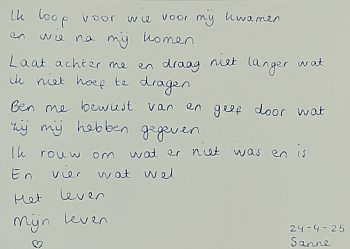 Ik loop voor wie voor mij kwamen
en wie na mij komen
Laat achter me en draag niet langer wat
ik niet hoef te dragen
Ben me bewust van en geef door wat
zij mij hebben gegeven
Ik rouw om wat er niet was en is
En vier wat wel
Het leven
Mijn leven
♡
24-4-25
Sanne